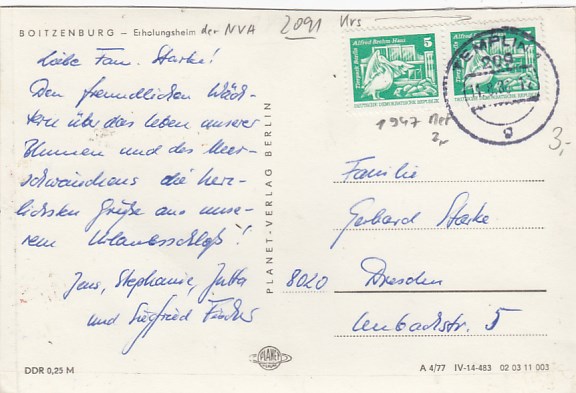 BOITZENBURG – Erholungsheim der NVA
2091 Krs
Alfred Brehm Haus
5
Tierpark Berlin
DEUTSCHE DEMOKRATISCHE REPUBLIK
Alfred Brehm Haus
Tierpark Berlin
DEUTSCHE DEMOKRATISCHE REPUBLIK
TEMPLIN 1
209
g
1947 Mer
2,-
3,-
Liebe Fam. Starke!
Den freundlichen Wäch-
tern über das Leben unserer
Blumen und des Meer-
schweinchens die herz-
lichsten Grüße aus unse-
rem Urlaubsschloß!
Jens, Stephanie, Jutta
und Siegfried
PLANET-VERLAG BERLIN
Familie
Gerhard Starke
8020 Dresden
Lenbachstr. 5
DDR 0,25 M
PLANET
A 4/77 IV-14-483 02 03 11 003